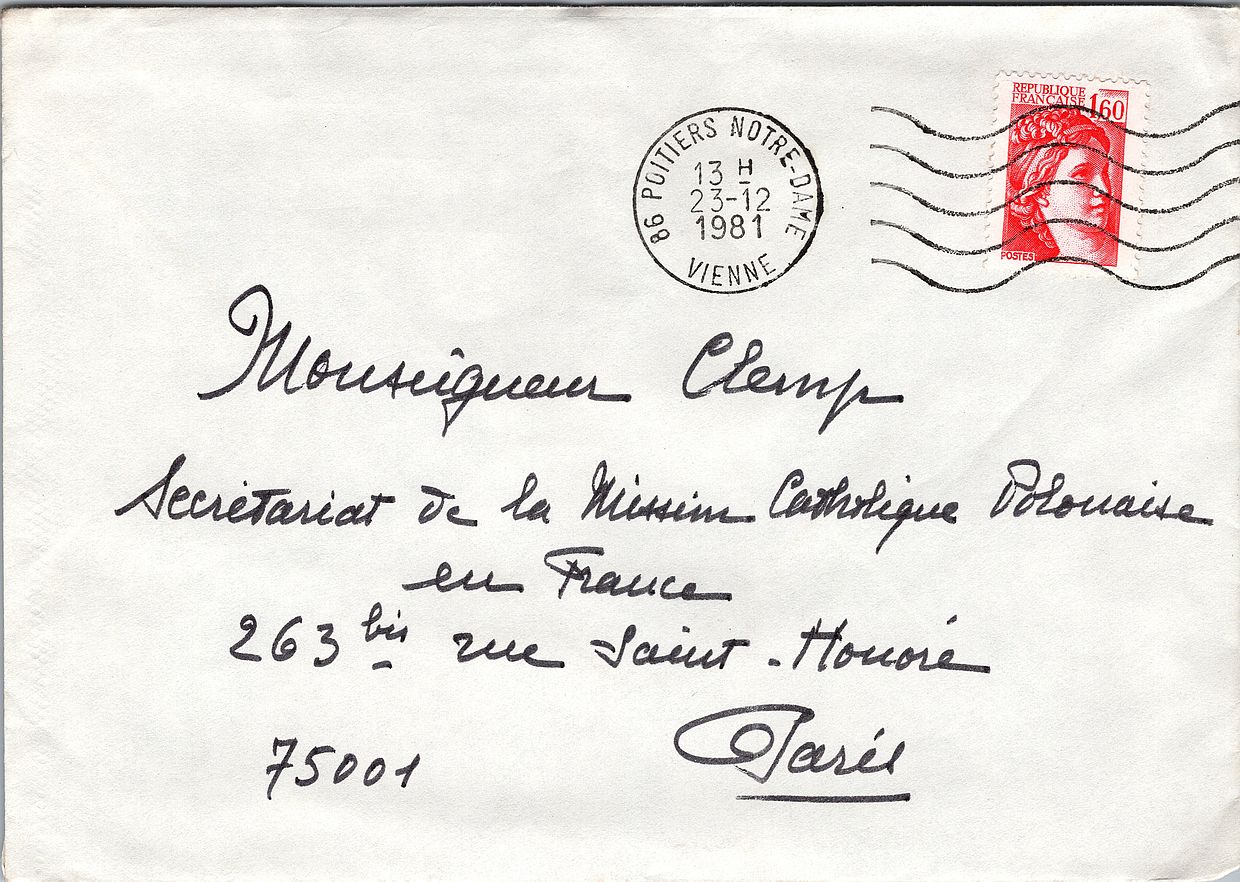 REPUBLIQUE
FRANÇAISE 1,60
POSTES
86 POITIERS NOTRE-DAME
13 H
23-12
1981
VIENNE
Monseigneur Clemp
Secrétariat de la Mission Catholique Polonaise
en France
263 bis rue Saint-Honoré
75001 Paris